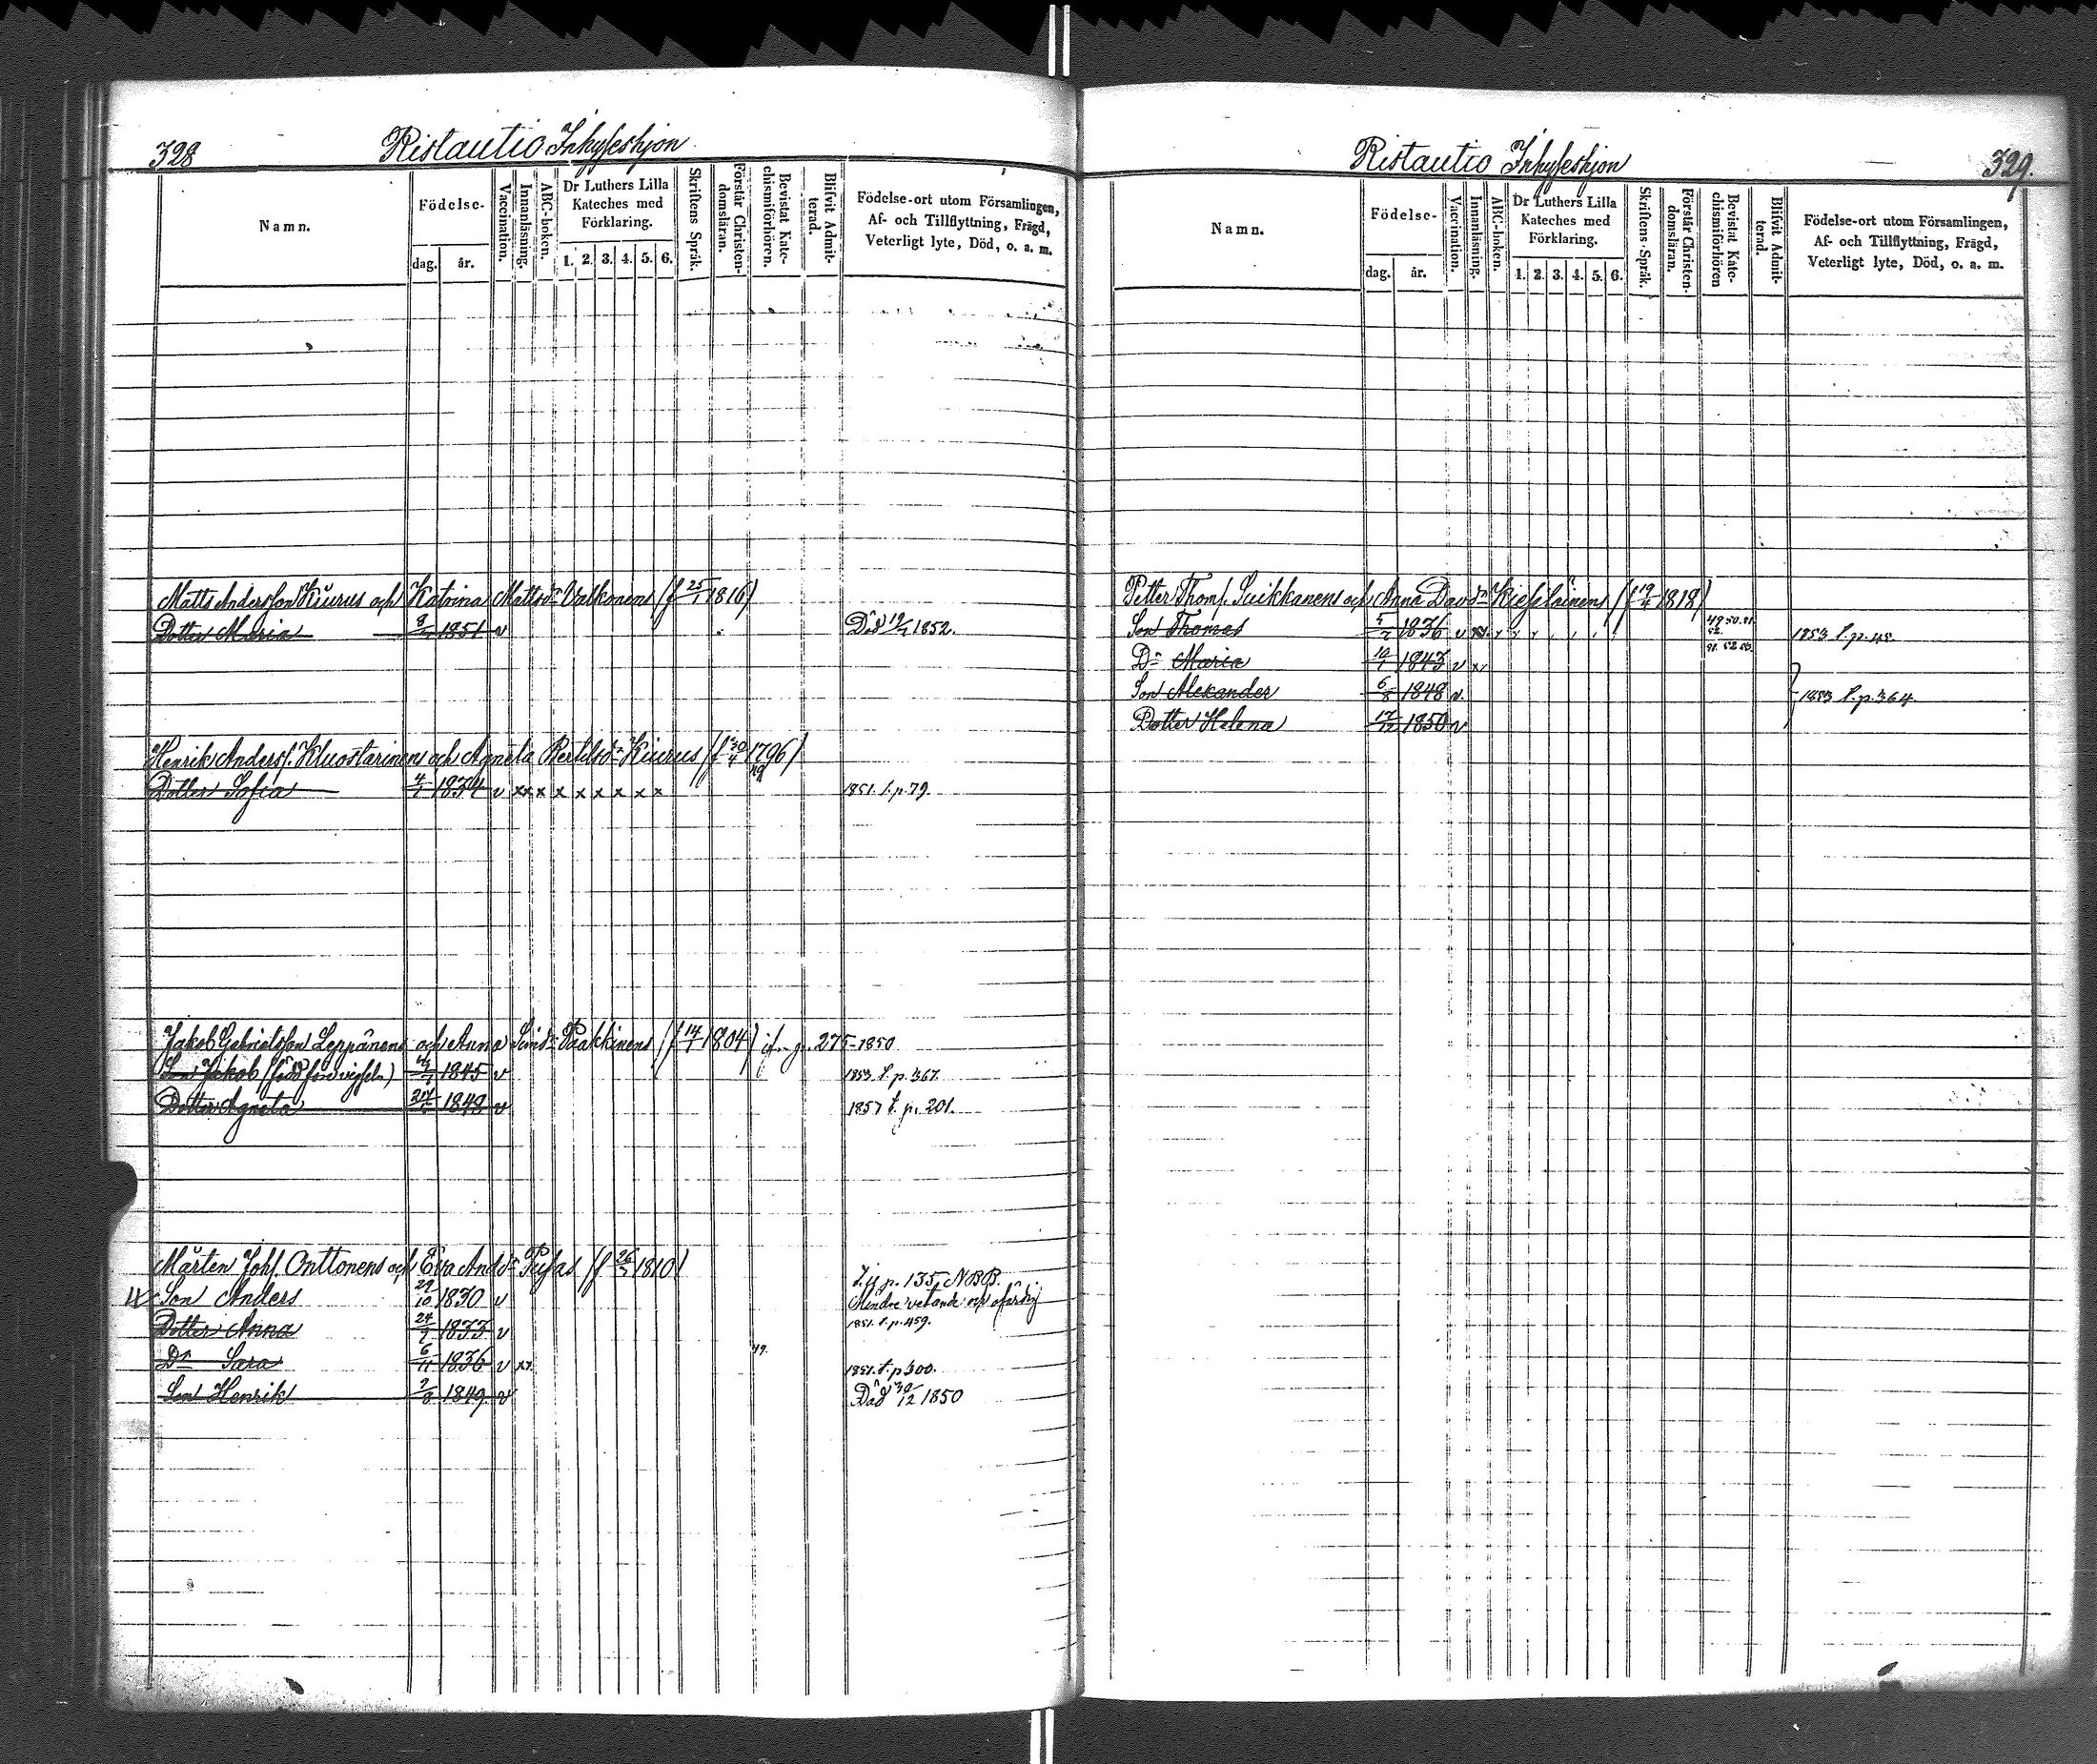 328
Ristautio Inhyseshjon
Namn.
Födelse-
dag. år.
Vaccination.
Innanläsning.
ABC-boken.
Dr Luthers Lilla
Kateches med
Förklaring.
1. 2. 3. 4. 5. 6.
Skriftens Språk.
Förstår Christen-
domsläran.
Bevistat Kate-
chismiförhören.
Blifvit Admit-
terad.
Födelse-ort utom Församlingen,
Af- och Tillflyttning, Frägd,
Veterligt lyte, Död, o. a. m.
Matts Andersson Kiurus och Katrina Mattsdr Valkonens (f 25/1 1816)
Dotter Maria 1851 v Död 1852.
Henrik Anderss. Kluostarinens och Agneta Bertelsdr Kiurus (f 30/4 1796)
49
Dotter Sofia 1834 v xx x x x x x x x 1851. t.p. 79.
Jakob Gabrielsson Leppänens och Anna Paakkinens (f 14/1 1804) 275-1850
Son Jakob (född före vigseln) 1845 v 1853 t.p. 367.
Dotter Agneta 1848 v 1857 t. p. 201.
Mårten Joh. Onttonens och Eva Andsdr (f 26/3 1810)
p. 135 NBB.
Son Anders 29/10 1830 v Mindre vetande och ofärdig
Dotter Anna 1833 v 1851. t.p. 459.
49.
Dr Sara 6/11 1836 v xx 1851. t.p 300.
Son Henrik 1849. v Död 30/12 1850
Ristautio Inhyseshjon
329.
Namn.
Födelse-
dag. år.
Vaccination.
Innanläsning.
ABC-boken.
Dr Luthers Lilla
Kateches med
Förklaring.
1. 2. 3. 4. 5. 6.
Skriftens Språk.
Förstår Christen-
domsläran.
Bevistat Kate-
chismiförhören
Blifvit Admit-
terad.
Födelse-ort utom Församlingen,
Af- och Tillflyttning, Frägd,
Veterligt lyte, Död, o. a. m.
Petter Thoms. Suikkanens och Anna Davdr (f 19/4 1818)
Son Thomas 1836 v 49 50. 51. 52. 1853 t.p. 45.
Dr Maria 1843 v xx 51. 52 53.
Son Alexander 6/8 1848 v 1853 t.p. 364.
Dotter Helena 17/12 1850 v